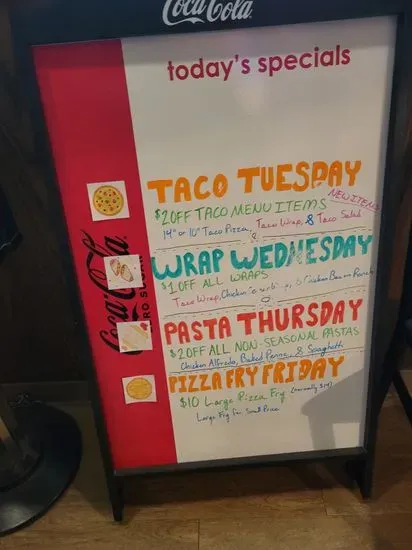 Coca-Cola
today's specials
TACO TUESDAY
NEW ITEMS
$2 OFF TACO MENU ITEMS
14" or 10" Taco Pizza, Taco Wrap, & Taco Salad
WRAP WEDNESDAY
$1 OFF ALL WRAPS
Taco Wrap, Chicken Bacon Ranch
PASTA THURSDAY
$2 OFF ALL NON-SEASONAL PASTAS
Chicken Alfredo, Baked Penne, & Spaghetti
PIZZA FRY FRIDAY
$10 Large Pizza Fry (normally $14)
Large Fry for Small Price
Coca-Cola